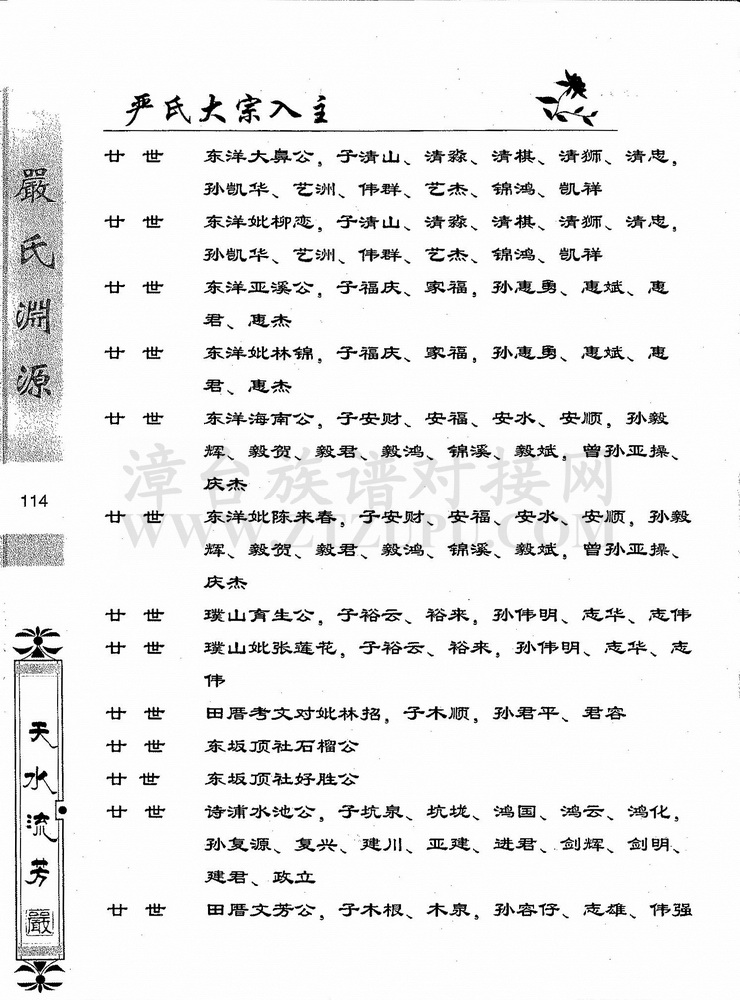 严氏大宗入主
廿 世 东洋大鼻公，子清山、清淼、清棋、清狮、清忠，
孙凯华、艺洲、伟群、艺杰、锦鸿、凯祥
廿 世 东洋妣柳恋，子清山、清淼、清棋、清狮、清忠，
孙凯华、艺洲、伟群、艺杰、锦鸿、凯祥
廿 世 东洋亚溪公，子福庆、家福，孙惠勇、惠斌、惠
君、惠杰
廿 世 东洋妣林锦，子福庆、家福，孙惠勇、惠斌、惠
君、惠杰
廿 世 东洋海南公，子安财、安福、安水、安顺，孙毅
辉、毅贺、毅君、毅鸿、锦溪、毅斌，曾孙亚操、
庆杰
廿 世 东洋妣陈来春，子安财、安福、安水、安顺，孙毅
辉、毅贺、毅君、毅鸿、锦溪、毅斌，曾孙亚操、
庆杰
廿 世 璞山育生公，子裕云、裕来，孙伟明、志华、志伟
廿 世 璞山妣张莲花，子裕云、裕来，孙伟明、志华、志
伟
廿 世 田厝考文对妣林招，子木顺，孙君平、君容
廿 世 东坂顶社石榴公
廿 世 东坂顶社好胜公
廿 世 诗浦水池公，子坑泉、坑垅、鸿国、鸿云、鸿化，
孙复源、复兴、建川、亚建、进君、剑辉、剑明、
建君、政立
廿 世 田厝文芳公，子木根、木泉，孙容仔、志雄、伟强
嚴氏淵源
114
天水流芳
嚴
漳台族谱对接网
WWW.ZTZUPU.COM